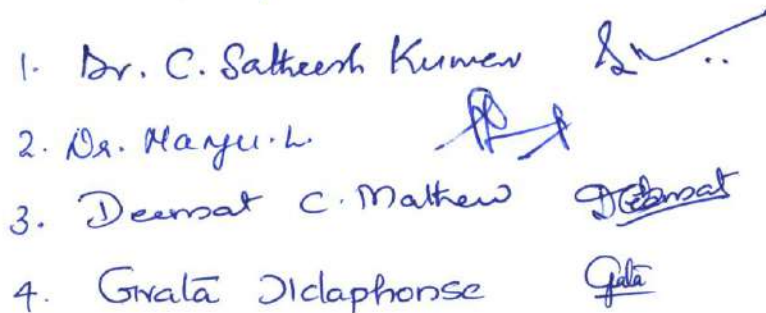 1. Dr. C. Satheesh Kumar
2. Dr. Manju. L.
3. Deensat C. Mathew Deensat
4. Gratā Ildaphonse Gratā